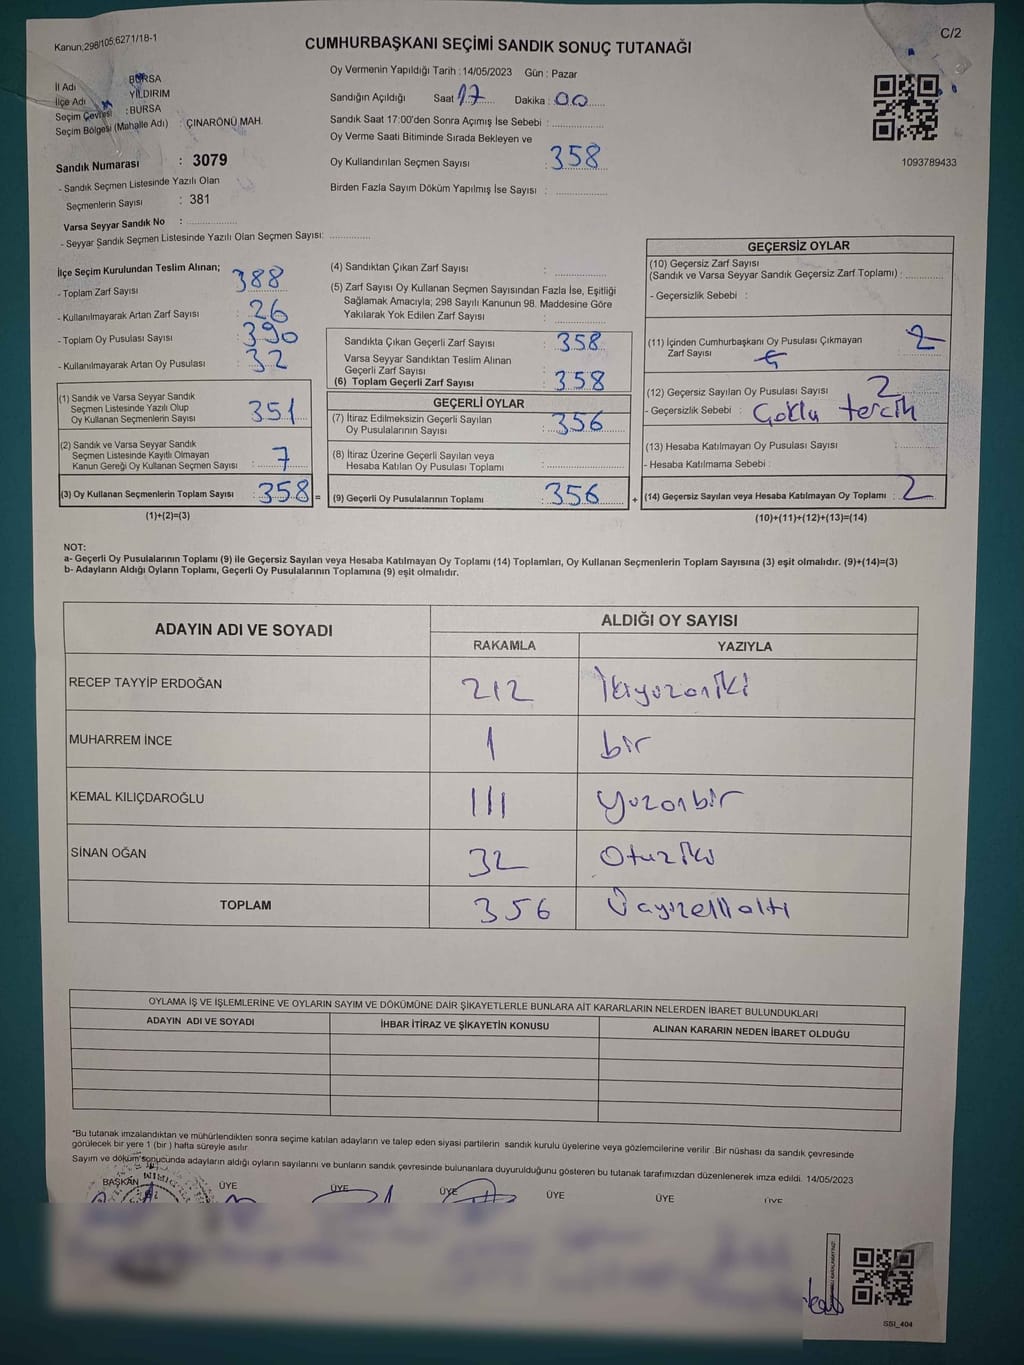 Kanun;298/105;6271/18-1
C/2
CUMHURBAŞKANI SEÇİMİ SANDIK SONUÇ TUTANAĞI
İl Adı BURSA
İlçe Adı YILDIRIM
Seçim Çevresi : BURSA
Seçim Bölgesi (Mahalle Adı) : ÇINARÖNÜ MAH.
Sandık Numarası : 3079
- Sandık Seçmen Listesinde Yazılı Olan
Seçmenlerin Sayısı : 381
Varsa Seyyar Sandık No :
- Seyyar Sandık Seçmen Listesinde Yazılı Olan Seçmen Sayısı:
Oy Vermenin Yapıldığı Tarih : 14/05/2023 Gün : Pazar
Sandığın Açıldığı Saat 17 Dakika : 00
Sandık Saat 17:00'den Sonra Açımış İse Sebebi :
Oy Verme Saati Bitiminde Sırada Bekleyen ve
Oy Kullandırılan Seçmen Sayısı : 358
Birden Fazla Sayım Döküm Yapılmış İse Sayısı :
1093789433
İlçe Seçim Kurulundan Teslim Alınan;
- Toplam Zarf Sayısı : 388
- Kullanılmayarak Artan Zarf Sayısı : 26
- Toplam Oy Pusulası Sayısı : 390
- Kullanılmayarak Artan Oy Pusulası : 32
(1) Sandık ve Varsa Seyyar Sandık
Seçmen Listesinde Yazılı Olup
Oy Kullanan Seçmenlerin Sayısı : 351
(2) Sandık ve Varsa Seyyar Sandık
Seçmen Listesinde Kayıtlı Olmayan
Kanun Gereği Oy Kullanan Seçmen Sayısı : 7
(3) Oy Kullanan Seçmenlerin Toplam Sayısı : 358 =
(1)+(2)=(3)
(4) Sandıktan Çıkan Zarf Sayısı :
(5) Zarf Sayısı Oy Kullanan Seçmen Sayısından Fazla İse, Eşitliği
Sağlamak Amacıyla; 298 Sayılı Kanunun 98. Maddesine Göre
Yakılarak Yok Edilen Zarf Sayısı :
Sandıkta Çıkan Geçerli Zarf Sayısı : 358
Varsa Seyyar Sandıktan Teslim Alınan
Geçerli Zarf Sayısı
(6) Toplam Geçerli Zarf Sayısı : 358
GEÇERLİ OYLAR
(7) İtiraz Edilmeksizin Geçerli Sayılan
Oy Pusulalarının Sayısı : 356
(8) İtiraz Üzerine Geçerli Sayılan veya
Hesaba Katılan Oy Pusulası Toplamı :
(9) Geçerli Oy Pusulalarının Toplamı : 356 +
GEÇERSİZ OYLAR
(10) Geçersiz Zarf Sayısı
(Sandık ve Varsa Seyyar Sandık Geçersiz Zarf Toplamı) :
- Geçersizlik Sebebi :
(11) İçinden Cumhurbaşkanı Oy Pusulası Çıkmayan
Zarf Sayısı 2
(12) Geçersiz Sayılan Oy Pusulası Sayısı : 2
- Geçersizlik Sebebi : Çoklu tercih
(13) Hesaba Katılmayan Oy Pusulası Sayısı :
- Hesaba Katılmama Sebebi :
(14) Geçersiz Sayılan veya Hesaba Katılmayan Oy Toplamı : 2
(10)+(11)+(12)+(13)=(14)
NOT:
a- Geçerli Oy Pusulalarının Toplamı (9) ile Geçersiz Sayılan veya Hesaba Katılmayan Oy Toplamı (14) Toplamları, Oy Kullanan Seçmenlerin Toplam Sayısına (3) eşit olmalıdır. (9)+(14)=(3)
b- Adayların Aldığı Oyların Toplamı, Geçerli Oy Pusulalarının Toplamına (9) eşit olmalıdır.
ADAYIN ADI VE SOYADI ALDIĞI OY SAYISI
RAKAMLA YAZIYLA
RECEP TAYYİP ERDOĞAN 212 İkiyüzoniki
MUHARREM İNCE 1 bir
KEMAL KILIÇDAROĞLU 111 yüzonbir
SİNAN OĞAN 32 Otuziki
TOPLAM 356 Üçyüzellialtı
OYLAMA İŞ VE İŞLEMLERİNE VE OYLARIN SAYIM VE DÖKÜMÜNE DAİR ŞİKAYETLERLE BUNLARA AİT KARARLARIN NELERDEN İBARET BULUNDUKLARI
ADAYIN ADI VE SOYADI İHBAR İTİRAZ VE ŞİKAYETİN KONUSU ALINAN KARARIN NEDEN İBARET OLDUĞU
"Bu tutanak imzalandıktan ve mühürlendikten sonra seçime katılan adayların ve talep eden siyasi partilerin sandık kurulu üyelerine veya gözlemcilerine verilir .Bir nüshası da sandık çevresinde
görülecek bir yere 1 (bir ) hafta süreyle asılır
Sayım ve döküm sonucunda adayların aldığı oyların sayılarını ve bunların sandık çevresinde bulunanlara duyurulduğunu gösteren bu tutanak tarafımızdan düzenlenerek imza edildi. 14/05/2023
BAŞKAN ÜYE ÜYE ÜYE ÜYE ÜYE ÜYE
SSI_404